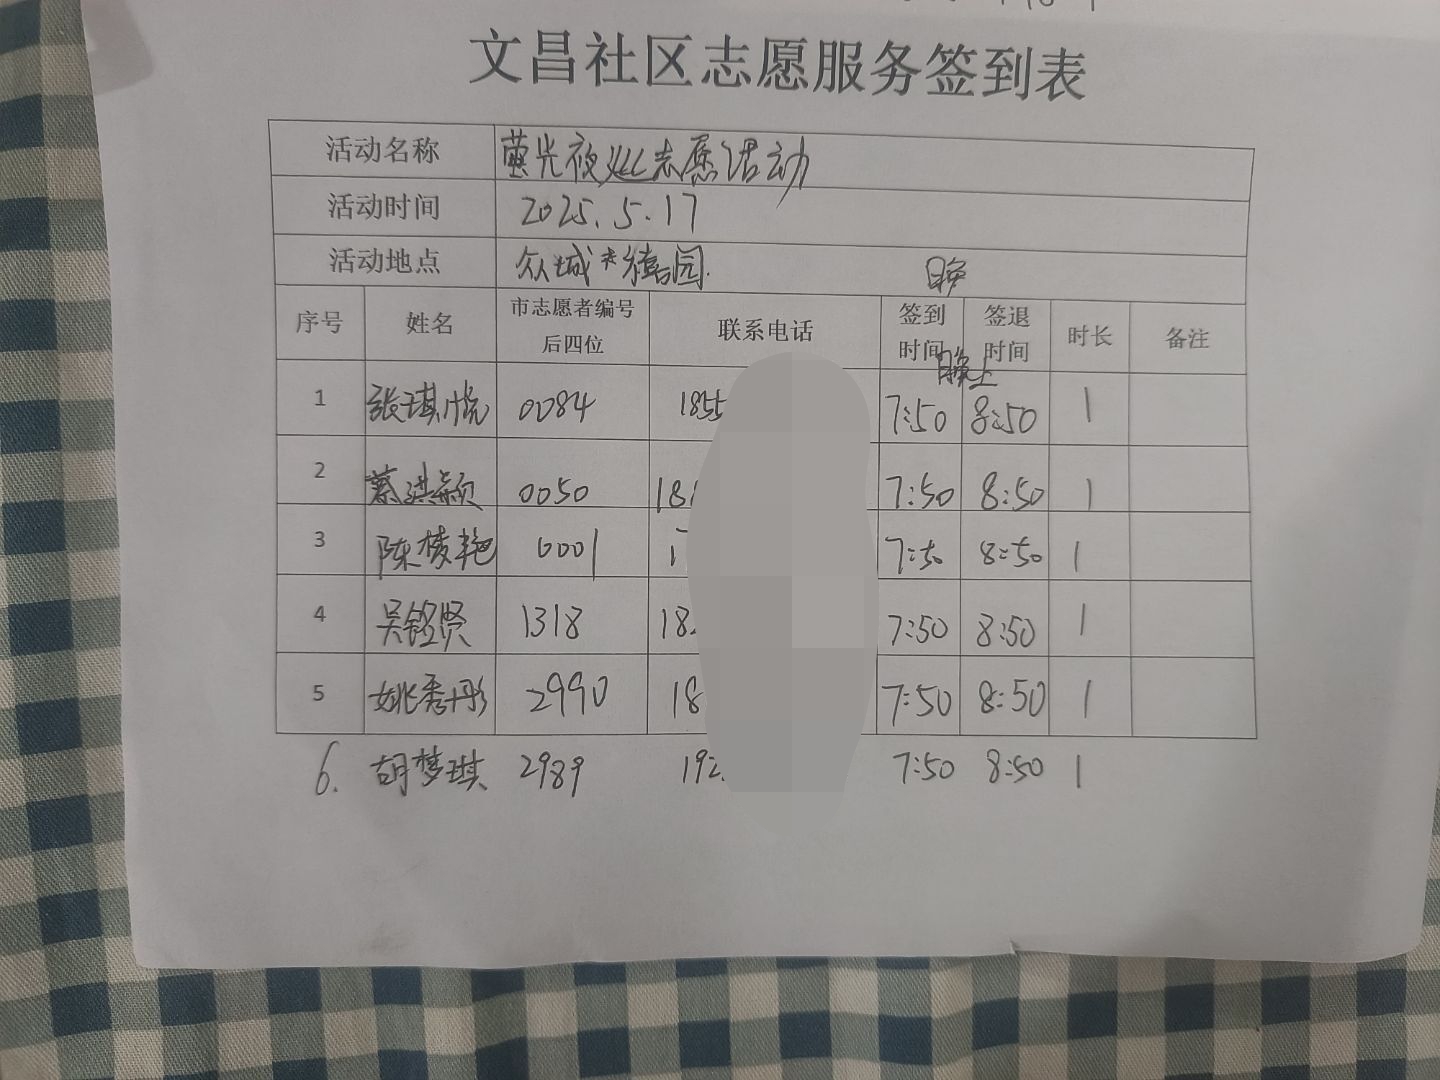 文昌社区志愿服务签到表
活动名称 萤光夜巡志愿活动
活动时间 2025.5.17
活动地点 众城 园
晚
序号 姓名 市志愿者编号后四位 联系电话 签到时间 签退时间 时长 备注
晚上
1 张琪悦 0084 1855 7:50 8:50 1
2 蔡洪颖 0050 18 7:50 8:50 1
3 陈棱艳 0001 1 7:50 8:50 1
4 吴铿贤 1318 18 7:50 8:50 1
5 姚秀彤 2990 18 7:50 8:50 1
6. 胡梦琪 2989 192 7:50 8:50 1